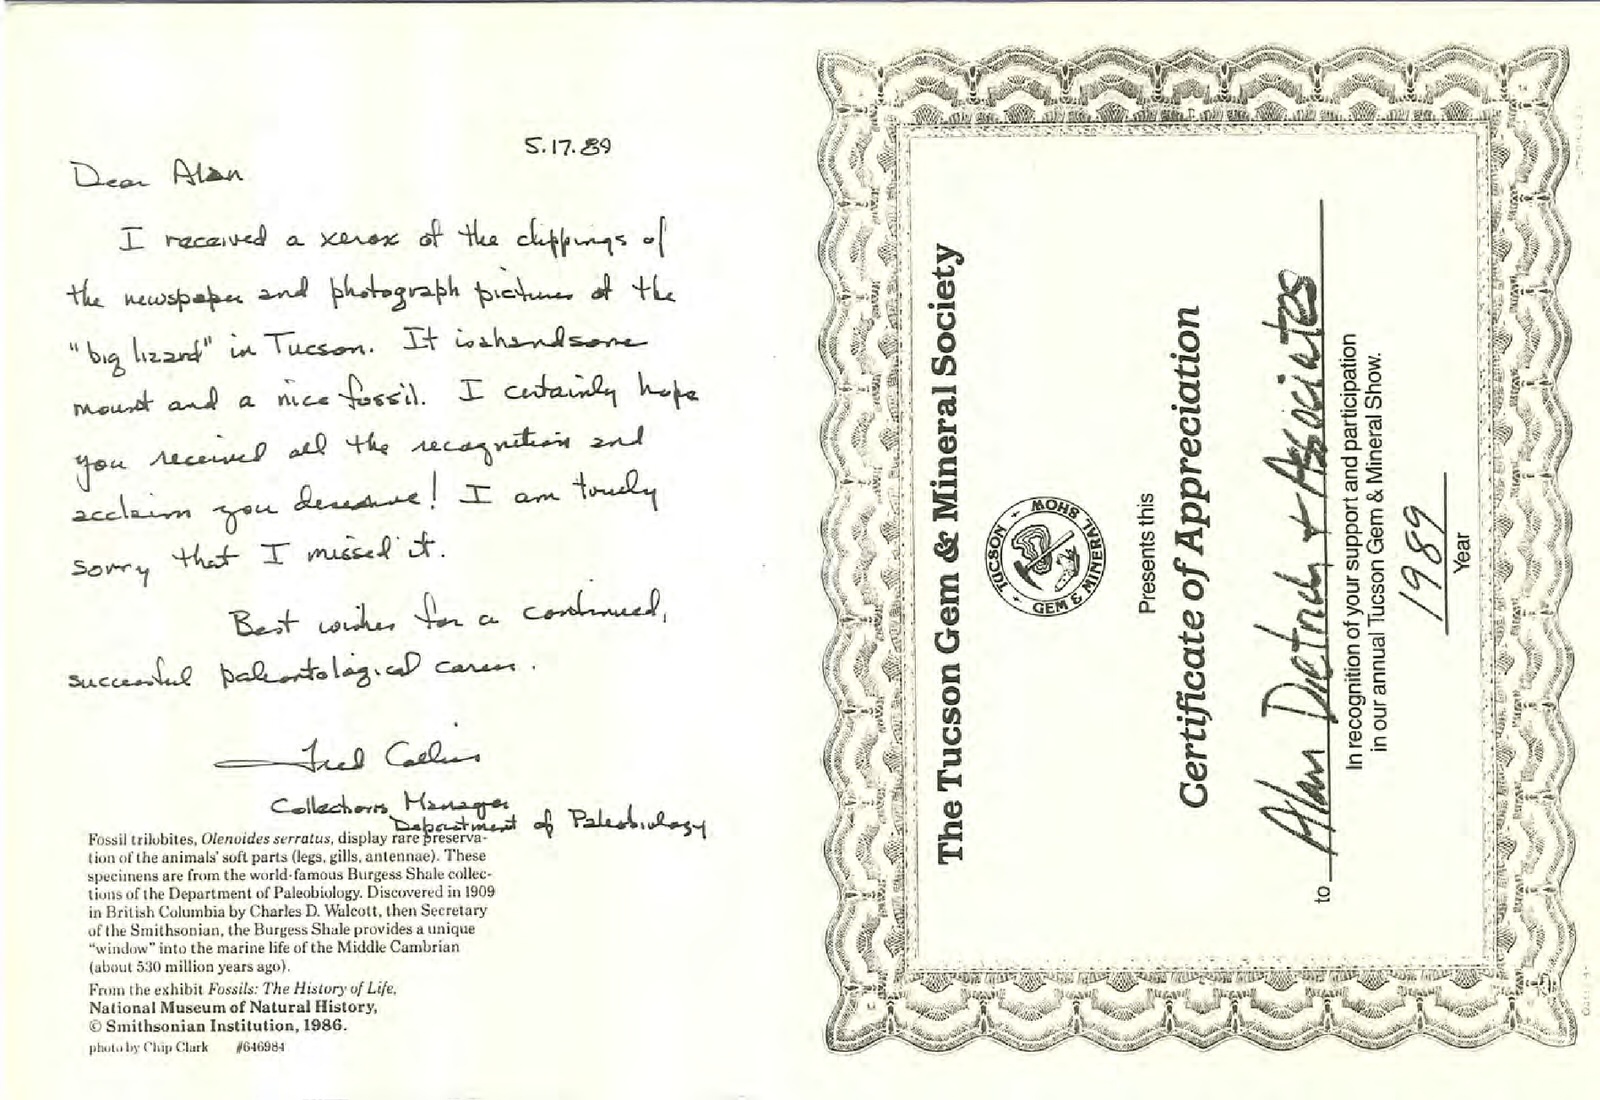 5.17.89
Dear Alan
I received a xerox of the clippings of
the newspaper and photograph pictures of the
"big lizard" in Tucson. It is a handsome
mount and a nice fossil. I certainly hope
you received all the recognition and
acclaim you deserve! I am truely
sorry that I missed it.
Best wishes for a continued,
successful paleontological career.
Fred Collier
Collections Manager
Department of Paleobiology
Fossil trilobites, Olenoides serratus, display rare preserva-
tion of the animals' soft parts (legs, gills, antennae). These
specimens are from the world-famous Burgess Shale collec-
tions of the Department of Paleobiology. Discovered in 1909
in British Columbia by Charles D. Walcott, then Secretary
of the Smithsonian, the Burgess Shale provides a unique
"window" into the marine life of the Middle Cambrian
(about 530 million years ago).
From the exhibit Fossils: The History of Life,
National Museum of Natural History,
© Smithsonian Institution, 1986.
photo by Chip Clark #646984
The Tucson Gem & Mineral Society
TUCSON GEM & MINERAL SHOW MOHS
Presents this
Certificate of Appreciation
to Alan Dietrich + Associates
In recognition of your support and participation
in our annual Tucson Gem & Mineral Show.
1989
Year